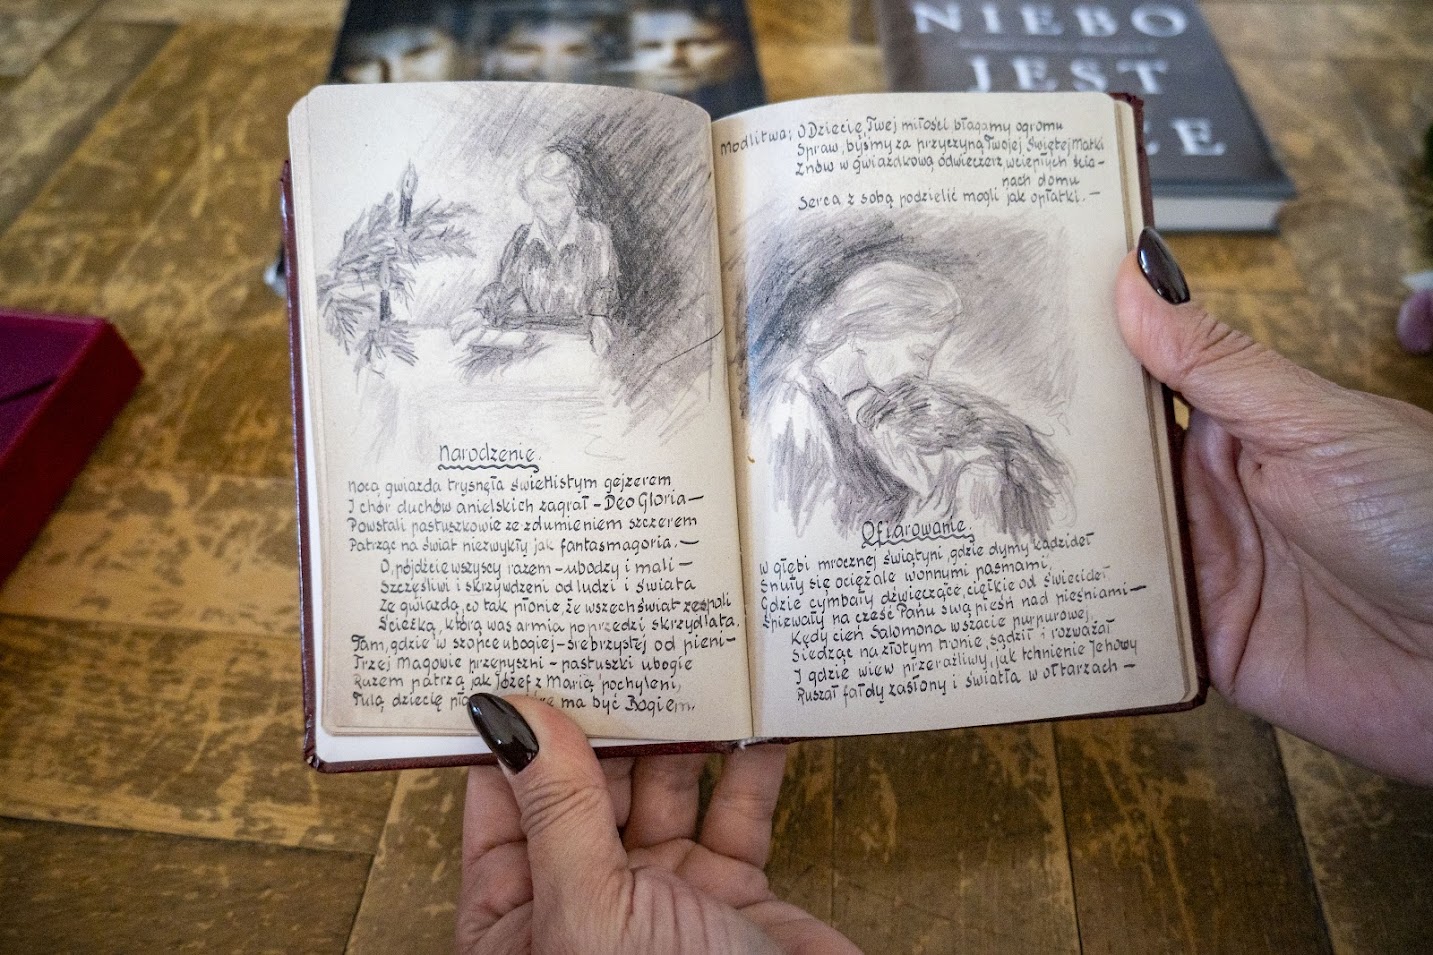 Narodzenie.
Nocą gwiazda trysnęła świetlistym gejzerem
I chór duchów anielskich zagrał – Deo Gloria –
Powstali pastuszkowie ze zdumieniem szczerem
Patrząc na świat niezwykły jak fantasmagoria. –
O, pójdźcie wszyscy razem – ubodzy i mali –
Szczęśliwi i skrzywdzeni od ludzi i świata
Za gwiazdą, co tak płonie, że wszechświat zespoli
Ścieżką, którą was armia poprzedzi skrzydlata.
Tam, gdzie w szopce ubogiej – srebrzystej od pieni –
Trzej Magowie przepyszni – pastuszki ubogie
Razem patrzą jak Józef z Marią pochyleni,
Tulą dziecię ma być Bogiem.
Modlitwa: O Dziecię, Twej miłości błagamy ogromu
Spraw, byśmy za przyczyną Twojej Świętej Matki
Znów w gwiazdkową odwieczerz w ciepłych ścia-
nach domu
Serca z sobą podzielić mogli jak opłatki. –
Ofiarowanie.
W głębi mrocznej świątyni, gdzie dymy kadzideł
Snuły się ociężale wonnymi pasmami,
Gdzie cymbały dźwięczące, ciężkie od świecideł
Śpiewały na cześć Panu swą pieśń nad pieśniami –
Kędy cień Salomona w szacie purpurowej
Siedząc na złotym tronie, sądził i rozważał
I gdzie wiew przeraźliwy, jak tchnienie Jehowy
Ruszał fałdy zasłony i światła w ołtarzach –
NIEBO
JEST